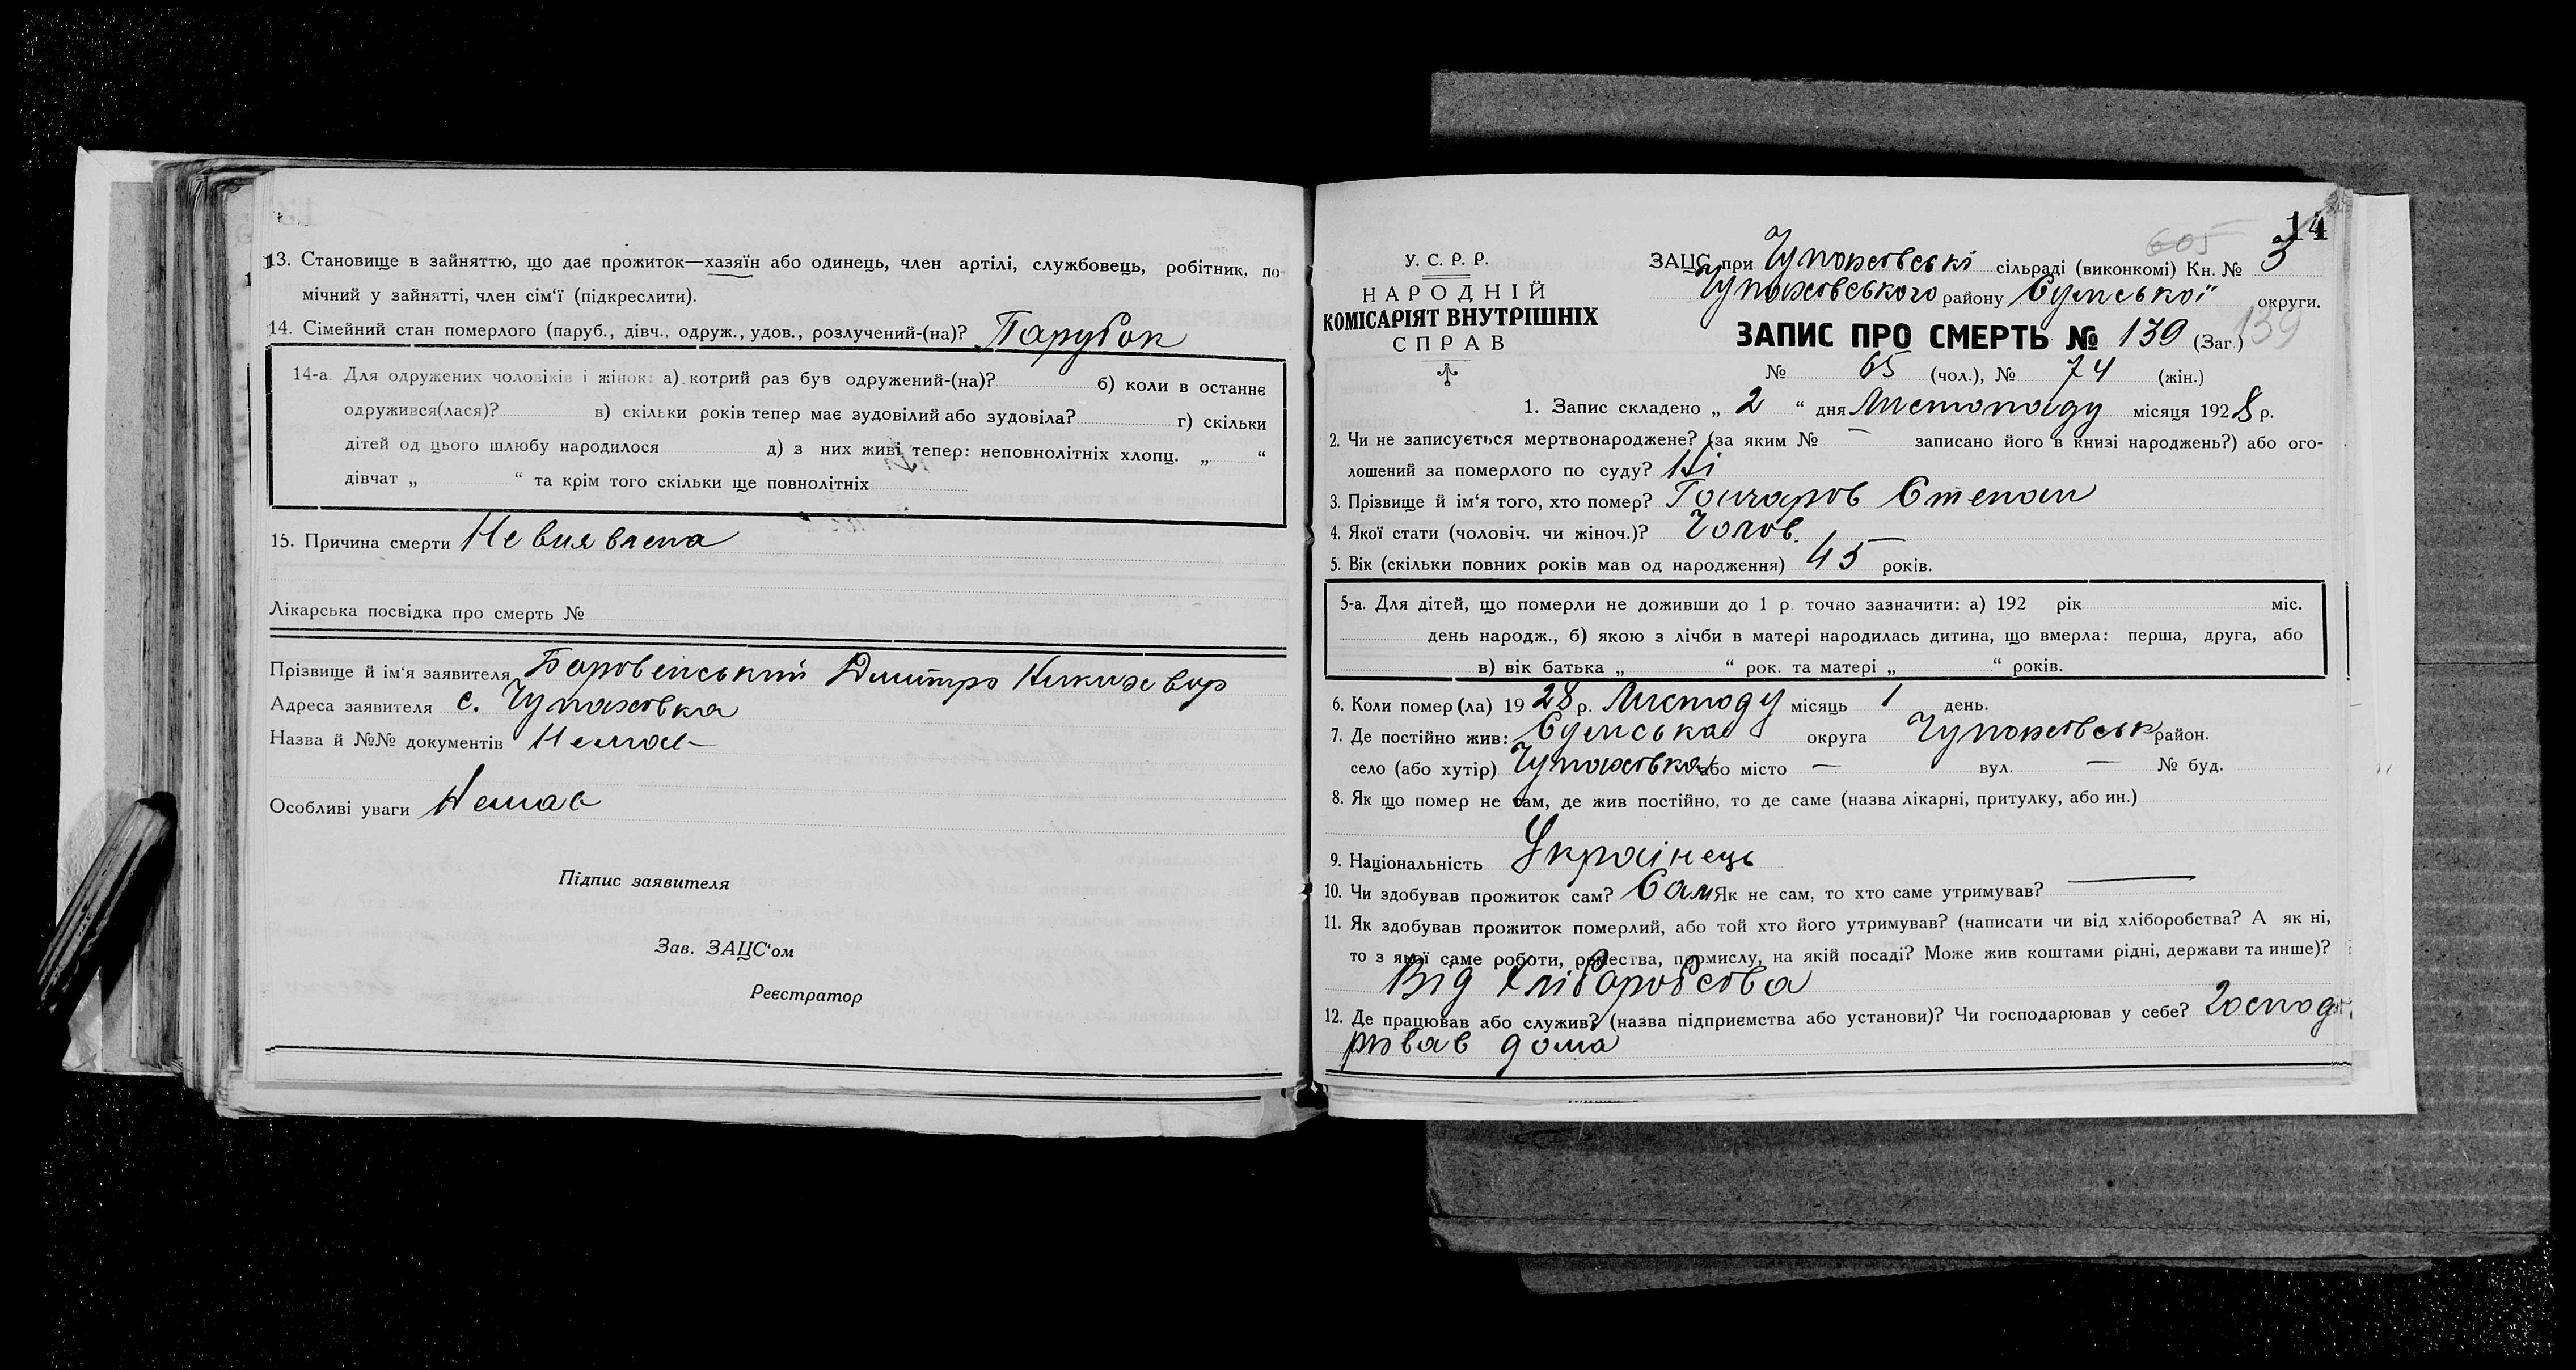 13. Становище в зайняттю, що дає прожиток—хазяїн або одинець, член артілі, службовець, робітник, по-
мічний у зайнятті, член сім‘ї (підкреслити).
14. Сімейний стан померлого (паруб., дівч., одруж., удов., розлучений-(на)? Парубок
14-а. Для одружених чоловіків і жінок: а) котрий раз був одружений-(на)? б) коли в останнє
одружився(лася)? в) скільки років тепер має зудовілий або зудовіла? г) скільки
дітей од цього шлюбу народилося д) з них живі тепер: неповнолітніх хлопц. „ “
дівчат „ “ та крім того скільки ще повнолітніх
15. Причина смерти Не виявлена
Лікарська посвідка про смерть №
Прізвище й ім‘я заявителя Боровенський Дмитро
Адреса заявителя с. Чупаховка
Назва й №№ документів Немає
Особливі уваги Немає
Підпис заявителя
Зав. ЗАЦС‘ом
Реєстратор
14
605
У. С. Р. Р.
НАРОДНІЙ
КОМІСАРІЯТ ВНУТРІШНІХ
СПРАВ
ЗАЦС при Чупаховські сільраді (виконкомі) Кн. № 3
Чупаховського району Сумської округи.
ЗАПИС ПРО СМЕРТЬ № 139 (Заг.) 139
№ 65 (чол.), № 74 (жін.)
1. Запис складено „ 2 “ дня Листопаду місяця 1928 р.
2. Чи не записується мертвонароджене? (за яким № — записано його в книзі народжень?) або ого-
лошений за померлого по суду? Ні
3. Прізвище й ім‘я того, хто помер? Гончаров Степан
4. Якої стати (чоловіч. чи жіноч.)? Чолов.
5. Вік (скільки повних років мав од народження) 45 років.
5-а. Для дітей, що померли не доживши до 1 р. точно зазначити: а) 192 рік міс.
день народж., б) якою з лічби в матері народилась дитина, що вмерла: перша, друга, або
в) вік батька „ “ рок. та матері „ “ років.
6. Коли помер(ла) 1928 р. Листоду місяць 1 день.
7. Де постійно жив: Сумська округа Чупаховськ район.
село (або хутір) Чупаховка або місто — вул. — № буд.
8. Як що помер не там, де жив постійно, то де саме (назва лікарні, притулку, або ин.)
9. Національність Українець
10. Чи здобував прожиток сам? Сам Як не сам, то хто саме утримував? —
11. Як здобував прожиток померлий, або той хто його утримував? (написати чи від хліборобства? А як ні,
то з якої саме роботи, ремества, промислу, на якій посаді? Може жив коштами рідні, держави та инше)?
Від хліборобства
12. Де працював або служив? (назва підприємства або установи)? Чи господарював у себе? Господа
рював дома